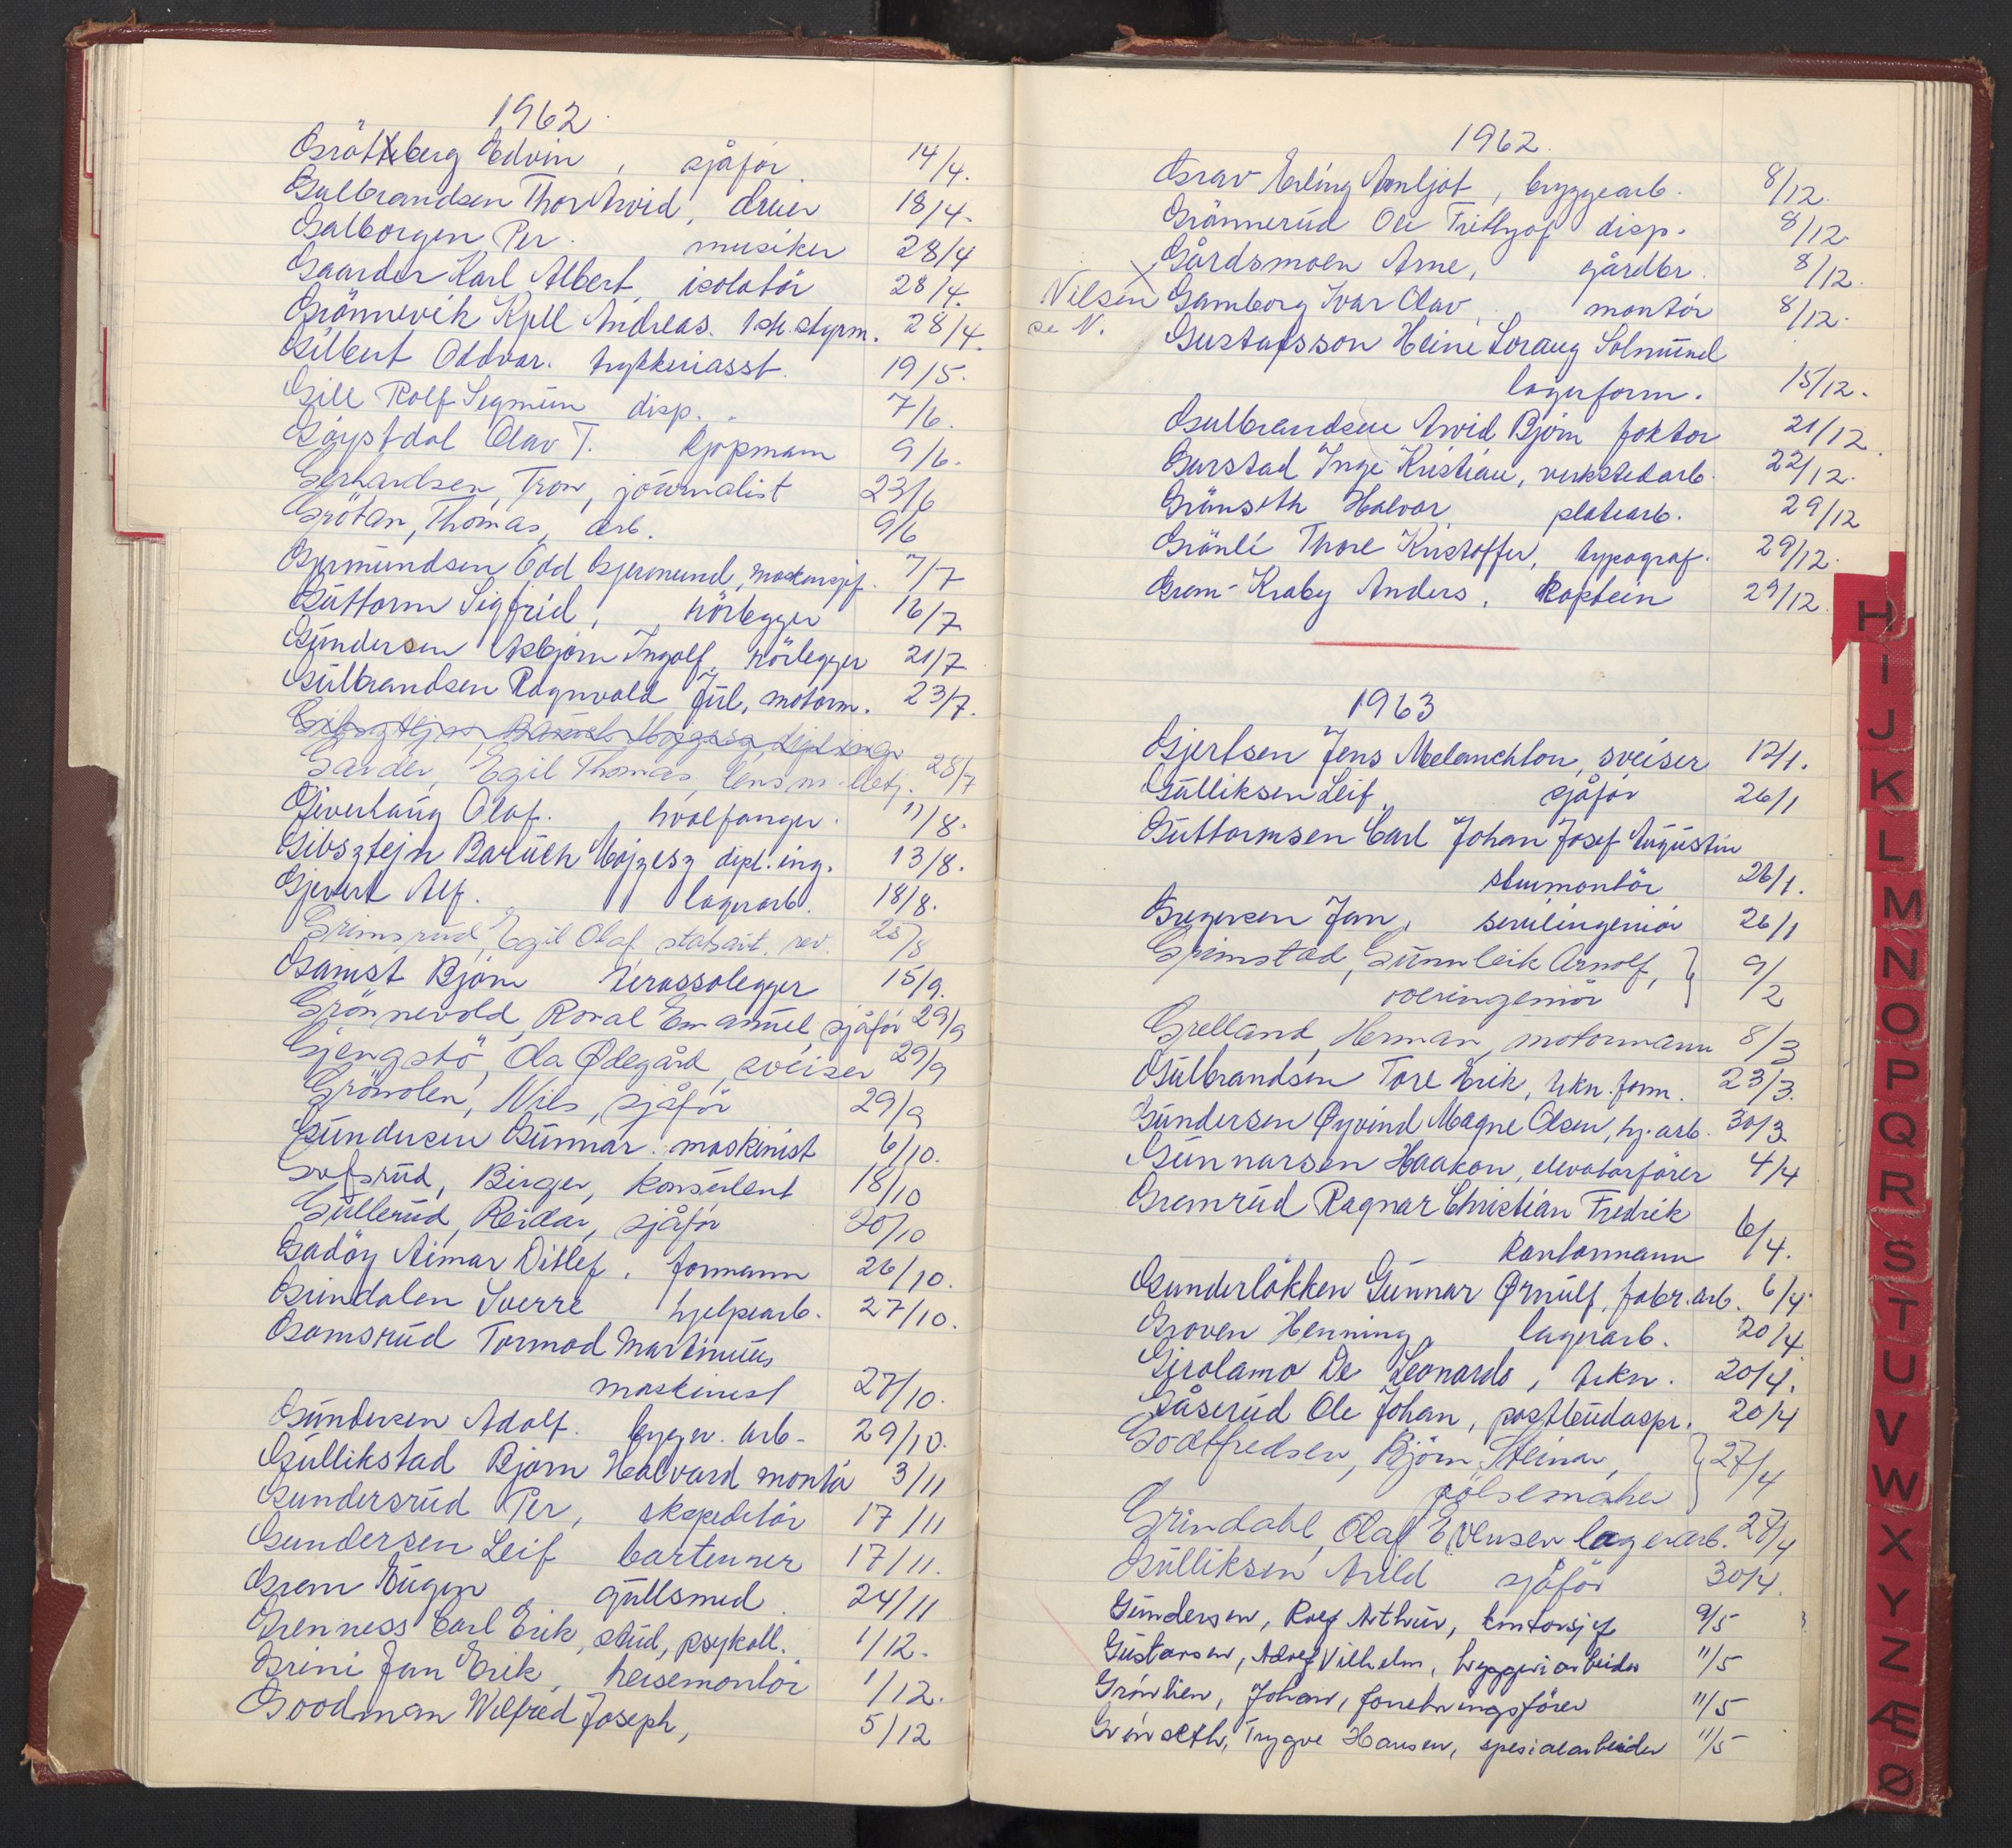 1962.
Gröttberg Edvin, sjåför 14/4.
Gulbrandsen Thor Arvid, dreier 18/4.
Galborgen Per. musiker 28/4
Gaarder Karl Albert, isolatör 28/4.
Grönnevik Kjell Andreas. 1ste styrm. 28/4.
Gilbert Oddvar. trykkeriasst. 19/5.
Gill Rolf Sigmun disp. 7/6.
Göystdal Olav T. kjøpmann 9/6.
Gerhardsen, Tron, journalist 23/6
Grötan, Thomas, arb. 9/6
Gjermundsen Odd Gjermund, maskinsjef. 7/7
Guttorm Sigfrid, rörlegger 16/7
Gundersen Asbjørn Ingolf, rörlegger 21/7
Gulbrandsen Ragnvald Jul. motorm. 23/7.
Gibsztejn Baruch Mojzesz, dipl. ing.
Garder, Egil Thomas, lensm. betj. 28/7
Gjverhaug Olaf. hvalfanger. 11/8.
Gibsztejn Baruch Mojzesz dipl. ing. 13/8.
Gjevert Alf. lagerarb. 18/8.
Grimsrud, Egil Olaf, statsaut. rev. 25/8
Gamst Björn terassolegger 15/9.
Grönnevold, Roval Emanuel, sjåför 29/9
Gjengstö, Ola Ødegård, sveiser 29/9
Grönolen, Nils, sjåför 29/9
Gundersen Gunnar. maskinist 6/10.
Gofsrud, Birger, konsulent 18/10
Gullerud, Reidar, sjåför 20/10
Gadöy Aimar Ditlef, formann 26/10.
Grindalen Sverre hjelpearb. 27/10.
Gomsrud Tormod Martinius
maskinist 27/10.
Gundersen Adolf. brygg. arb. 29/10.
Gullikstad Bjørn Halvard montör 3/11
Gundersrud Per, ekspeditör 17/11
Gundersen Leif bartenner 17/11.
Grem Eugen gullsmed 24/11
Grenness Carl Erik, stud. psykoll. 1/12.
Grini Jan Erik, heisemontör 1/12.
Goodman Wilfred Joseph, 5/12
1962.
Grav Erling Arnljot, bryggearb. 8/12.
Grönnerud Ole Trithjof disp. 8/12.
Gårdsmoen Arne, gårdbr. 8/12.
Nilsen X Gamborg Ivar Olav, montör 8/12.
se N.
Gustafsson Heine Loraug Solmund
lagerform. 15/12.
Gulbrandsen Arvid Bjørn faktor 21/12
Garstad Inge Kristian, verkstedarb. 22/12.
Grönseth Halvor platearb. 29/12
Grönli Thore Kristoffer, typograf. 29/12.
Grem-Kraby Anders, kaptein 29/12.
1963
Gjertsen Jens Melanchton, sveiser 12/1.
Gulliksen Leif, sjåför 26/1
Guttormsen Carl Johan Josef Augustin
stuimontör 26/1.
Gregersen Jan, sivilingeniör 26/1
Grimstad, Gunnleik Arnolf, } 9/2
overingeniör
Grelland, Herman, motormann 8/3
Gulbrandsen Tore Erik, tekn. form. 23/3.
Gundersen Øyvind Magne Olsen, hj. arb. 30/3
Gunnarsen Haakon, elevatorförer 4/4
Gremrud Ragnar Christian Fredrik
kontormann 6/4.
Gunderlökken Gunnar Ørnulf, fabr. arb. 6/4
Groven Henning, lagerarb. 20/4
Girolamo De Leonardo, tekn. 20/4.
Gåserud Ole Johan, postbudaspr. 20/4
Godtfredsen, Björn Steinar, } 27/4
pölsemaker
Grindahl, Olaf Evensen lagerarb. 27/4
Gulliksen Arild sjåför 30/4.
Gundersen, Rolf Arthur, kontorsjef 9/5
Gustavsen, Adolf Vilhelm, bryggeriarbeider 11/5
Grönlien, Johan, forretningsförer 11/5
Grönseth, Trygve Hansen, spesialarbeider 11/5
H
I
J
K
L
M
N
O
P
Q
R
S
T
U
V
W
X
Y
Z
Æ
Ø